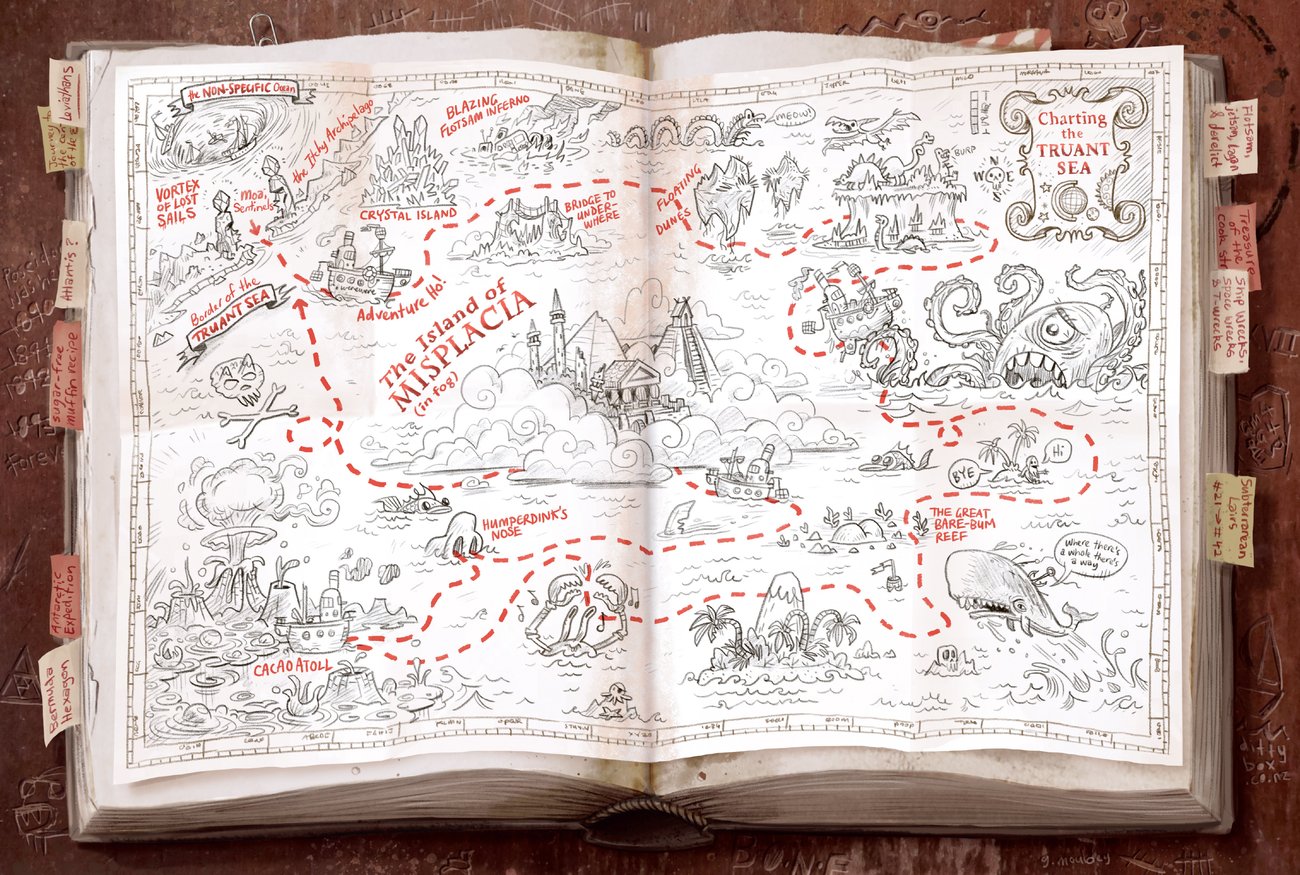 the NON-SPECIFIC Ocean
VORTEX
OF LOST
SAILS
Moai
Sentinels
the Itchy Archipelago
CRYSTAL ISLAND
BLAZING
FLOTSAM INFERNO
BRIDGE TO
UNDER-
WHERE
FLOATING
DUNES
MEOW!
BURP
N
W E
Charting
the
TRUANT
SEA
Border of the
TRUANT SEA
Adventure Ho!
The Island of
MISPLACIA
(in fog)
Hi
BYE
HUMPERDINK'S
NOSE
THE GREAT
BARE-BUM
REEF
Where there's
a whole there's
a way
CACAO ATOLL
Leviathans
Journey to
the
of the
Atlantis?
sugar-free
muffin recipe
Antarctic
Expedition
Bermuda
Hexagon
Flotsam,
Jetsam, Lagan
& Derelict
Treasure
of the
Cook
Ship Wrecks,
Space wrecks
& T-wrecks
Subterranean
Lairs
#21→#42
ditty
box
.co.nz
B.O.N.E
g. moulbey